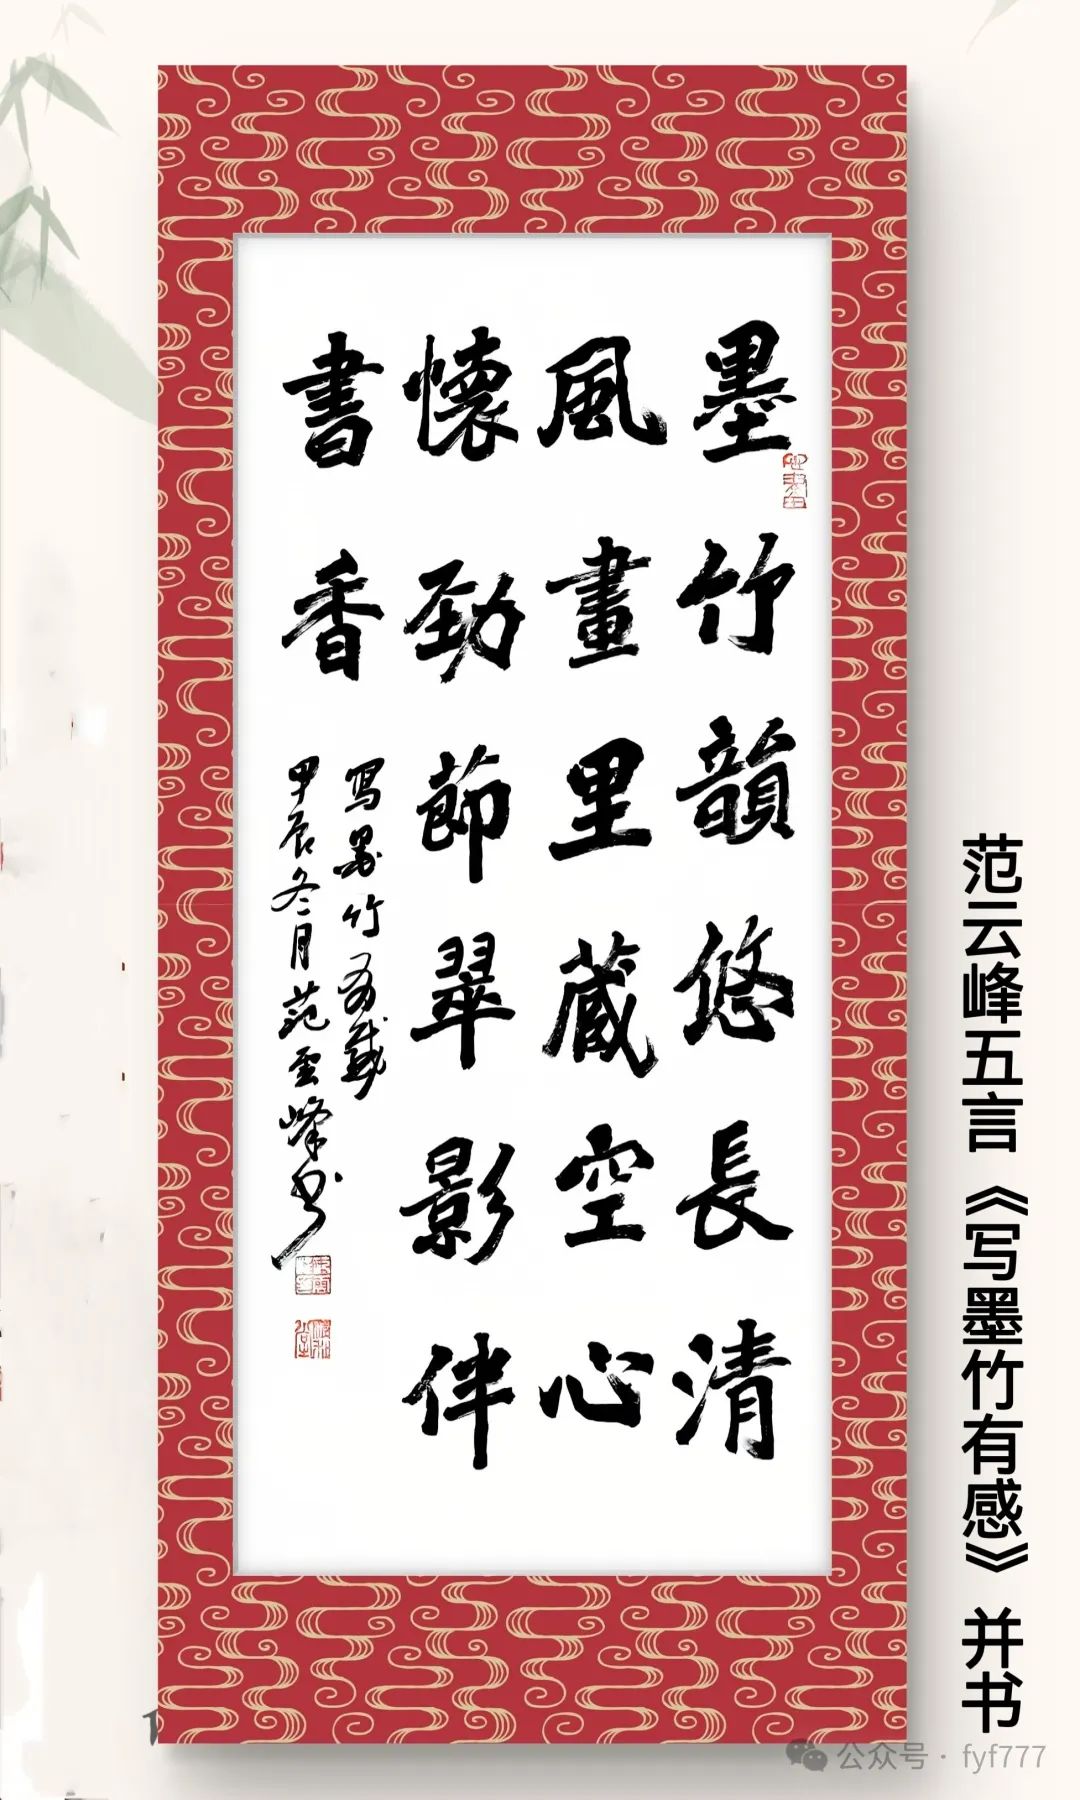 墨竹韻悠長清
風畫里蔵空心
懷勁節翠影伴
書香
寫墨竹有感
甲辰冬月范雲峰书
范云峰五言《写墨竹有感》并书
公众号·fyf777